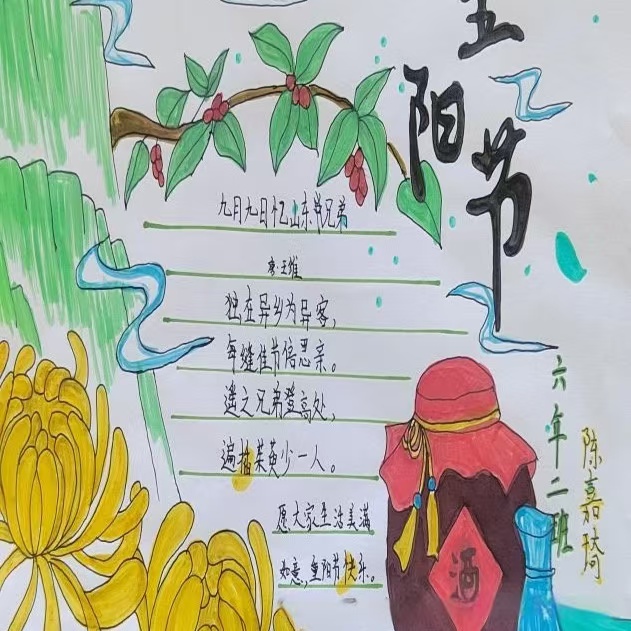 重阳节
九月九日忆山东兄弟
唐·王维
独在异乡为异客，
每缝佳节倍思亲。
遥之兄弟登高处，
遍插茱萸少一人。
愿大家生活美满
如意，重阳节快乐。
酒
六年二班
陈嘉琦